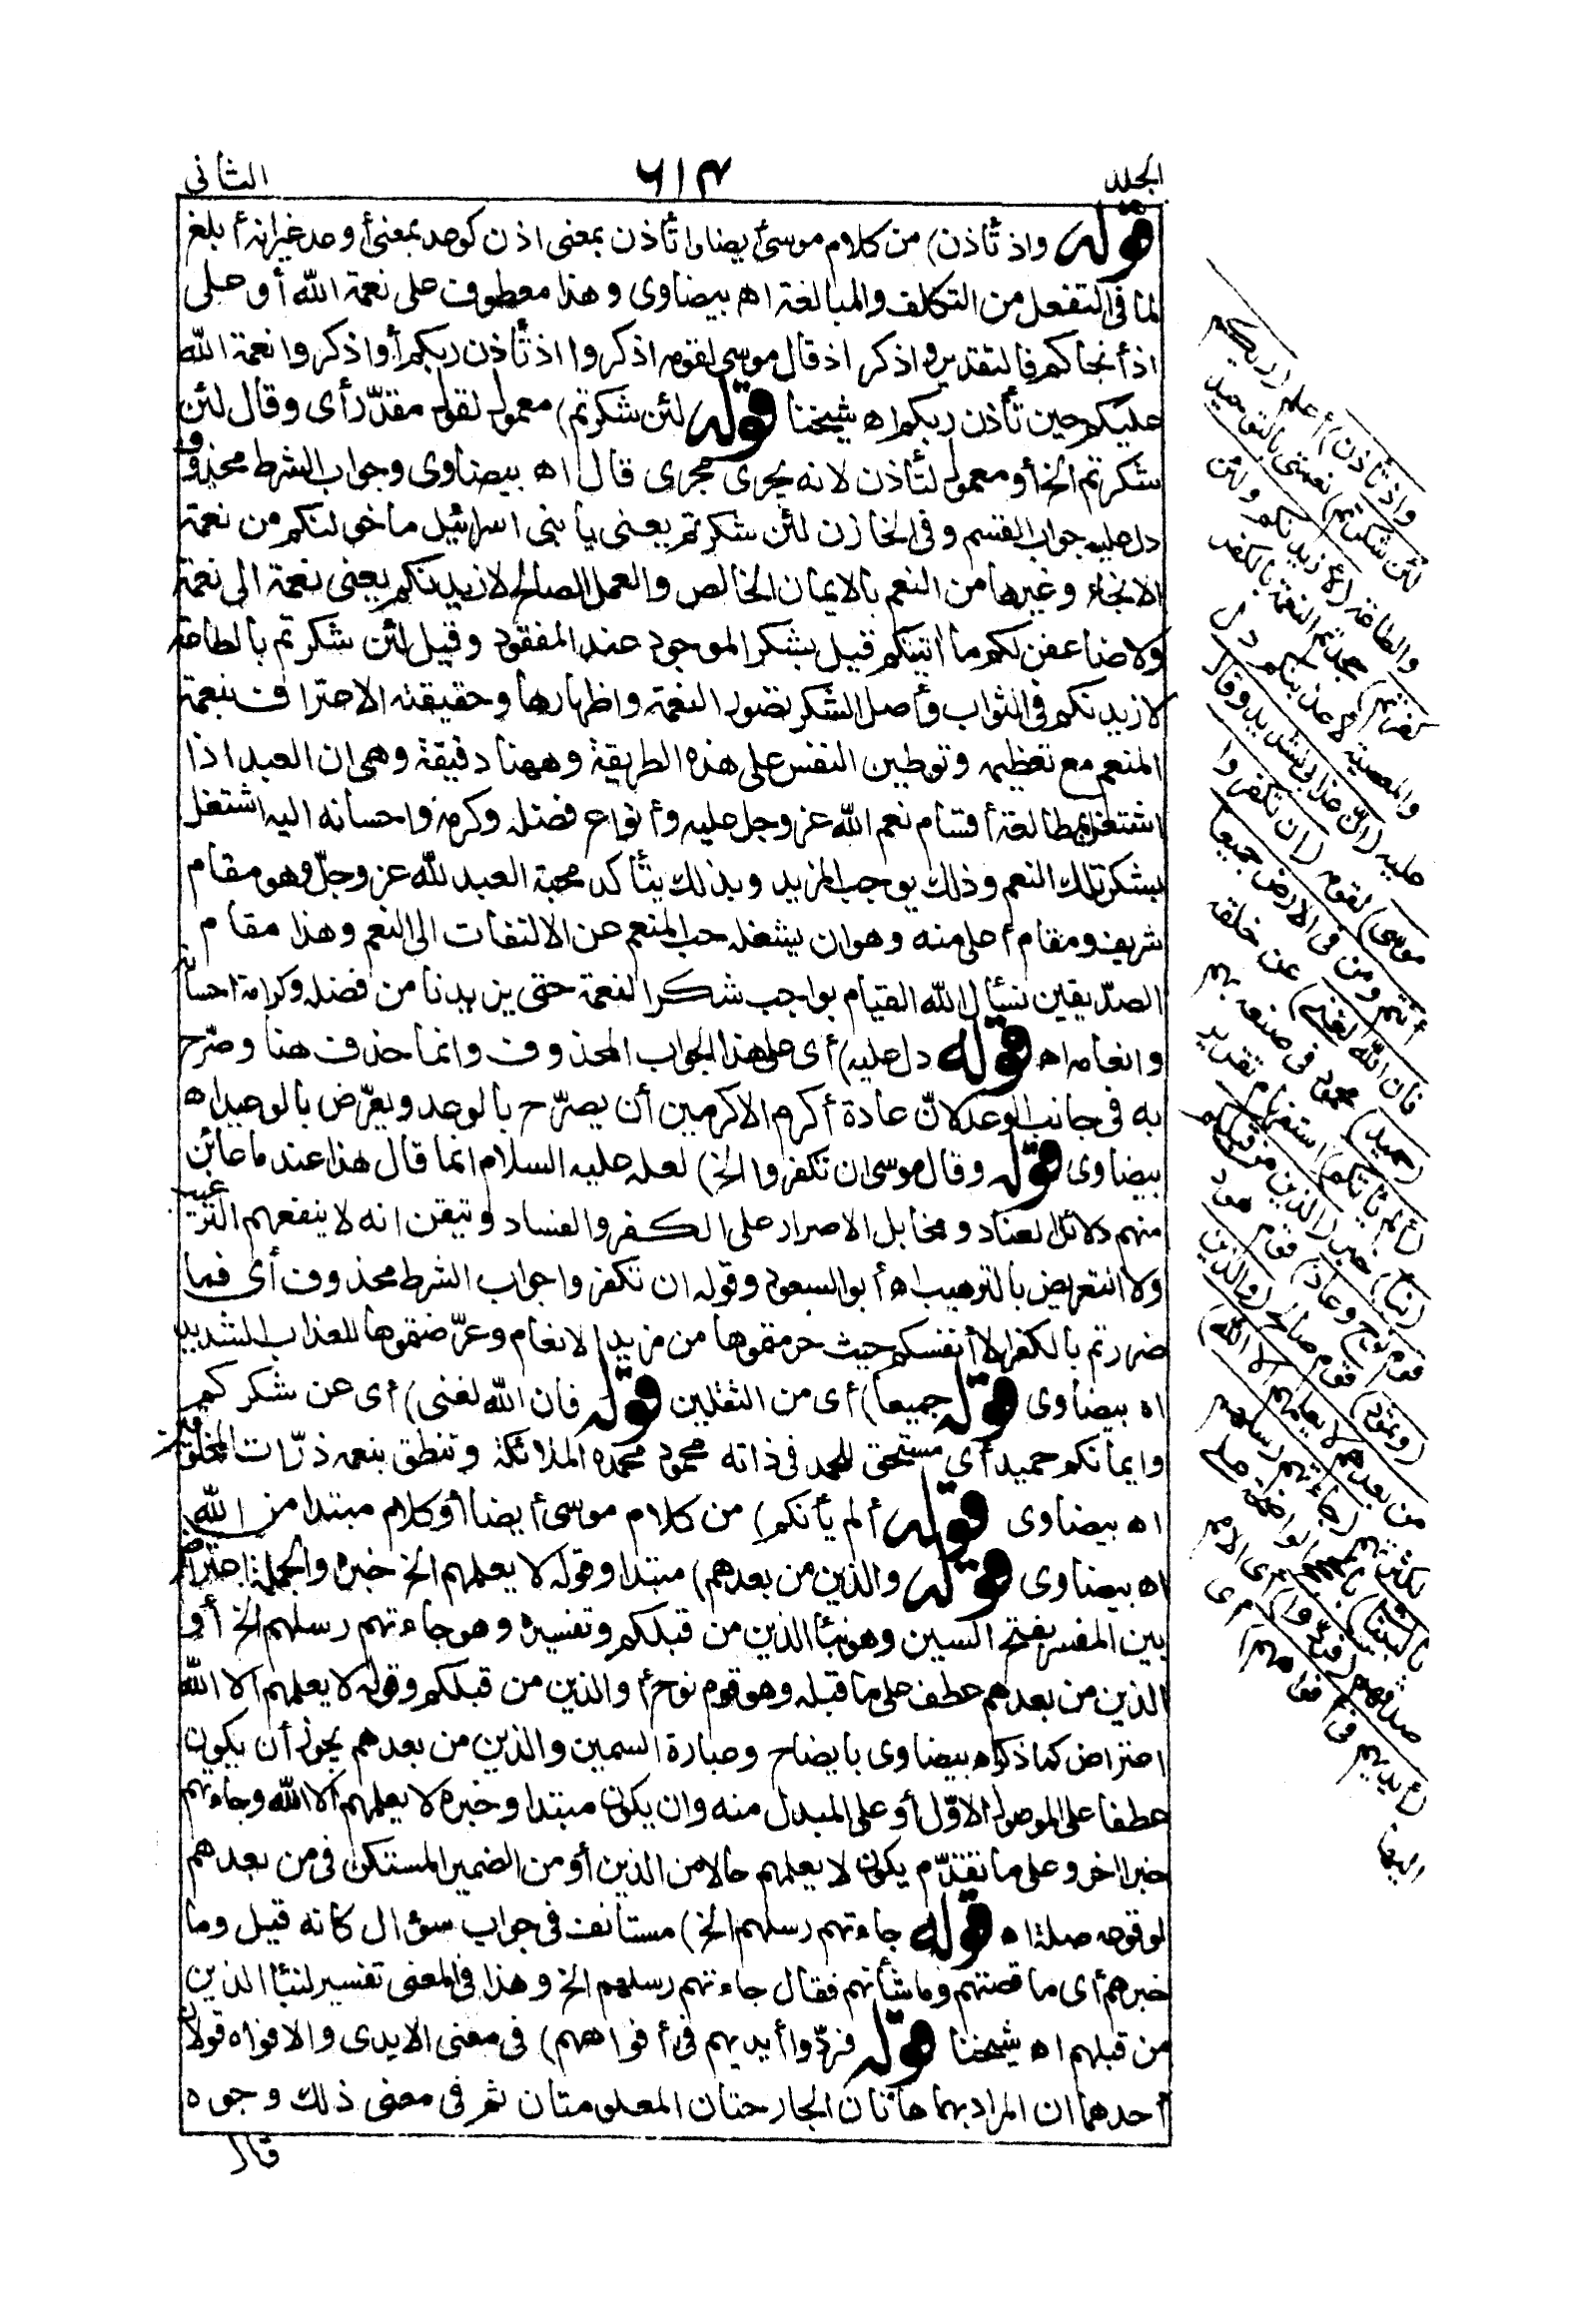 الجلد ٦١٣ الثاني
قوله واذ تأذن) من كلام موسى أيضا وا تأذن بمعنى اذن كوعد بمعنى أوعد غير انه أبلغ
لما فى التفعل من التكلف والمبالغة اه بيضاوى وهذا معطوف على نعمة الله أو على
اذ أنجاكم فالتقدير واذكر اذ قال موسى لقومه اذكروا اذ تأذن ربكم أو اذكروا نعمة الله
عليكم حين تأذن ربكم اه شيخنا قوله لئن شكرتم) معمول لقول مقدّر أى وقال لئن
شكرتم الخ أو معمول لتأذن لانه يجرى مجرى قال اه بيضاوى وجواب الشرط محذوف
دل عليه جواب القسم وفى الخازن لئن شكرتم يعنى يا بنى اسرائيل ما خولنكم من نعمة
الانجاء وغيرها من النعم بالايمان الخالص والعمل الصالح لازيدنكم يعنى نعمة الى نعمة
ولاضاعفن لكم ما اتيتكم قيل شكر الموجود عند المفقود وقيل لئن شكرتم بالطاعة
لازيدنكم فى الثواب وأصل الشكر تصور النعمة واظهارها وحقيقته الاعتراف بنعمة
المنعم مع تعظيمه وتوطين النفس على هذه الطريقة وههنا دقيقة وهى ان العبد اذا
اشتغل بمطالعة أقسام نعم الله عز وجل عليه وأنواع فضله وكرمه واحسانه اليه اشتغل
بشكر تلك النعم وذلك يوجب المزيد وبذلك يتأكد محبة العبد لله عز وجلّ وهو مقام
شريف ومقام أعلى منه وهو ان يشغله حب المنعم عن الالتفات الى النعم وهذا مقام
الصدّيقين نسأل الله القيام بواجب شكر النعمة حتى يزيدنا من فضله وكرامة احسانه
وانعامه اه قوله دل عليه) أى على هذا الجواب المحذوف وانما حذف هنا وصرّح
به فى جانب الوعد لانّ عادة أكرم الاكرمين أن يصرّح بالوعد ويعرّض بالوعيد اه
بيضاوى قوله وقال موسى ان تكفروا الخ) لعله عليه السلام انما قال هذا عند ما عاين
منهم دلائل العناد ومخايل الاصرار على الكفر والفساد وتيقن انه لا ينفعهم الترغيب
ولا التعريض بالترهيب اه أبو السعود وقوله ان تكفروا جواب الشرط محذوف أى فما
ضررتم بالكفر الا أنفسكم حيث حرمتموها من مزيد الانعام وعرّضتموها للعذاب الشديد
اه بيضاوى قوله جميعا) أى من الثقلين قوله فان الله لغنى) أى عن شكركم
وايمانكم حميد أى مستحق للحمد فى ذاته محمود تحمده الملائكة وتنطق بنعمه ذرّات المخلوقات
اه بيضاوى قوله ألم يأتكم) من كلام موسى أيضا أو كلام مبتدا من الله
اه بيضاوى قوله والذين من بعدهم) مبتدا وقوله لا يعلمهم الخ خبره والجملة اعتراض
بين المفسر بفتح السين وهو نبأ الذين من قبلكم وتفسيره وهو جاءتهم رسلهم الخ أو
الذين من بعدهم عطف على ما قبله وهو قوم نوح أو الذين من قبلكم وقوله لا يعلمهم الا الله
اعتراض كما ذكره بيضاوى بايضاح وعبارة السمين والذين من بعدهم يجوز أن يكون
عطفا على الموصول الاوّل أو على المبدل منه وان يكون مبتدا وخبره لا يعلمهم الا الله وجاءتهم
خبرا اخر وعلى ما تقدّم يكون لا يعلمهم حالا من الذين أو من الضمير المستكن فى من بعدهم
لوقوعه صلة اه قوله جاءتهم رسلهم الخ) مستأنف فى جواب سؤال كانه قيل وما
خبرهم أى ما قصتهم وما شأنهم فقال جاءتهم رسلهم الخ وهذا فى المعنى تفسير لنبأ الذين
من قبلهم اه شيخنا قوله فردّوا أيديهم فى أفواههم) فى معنى الايدى والافواه قولان
أحدهما ان المراد بهما هاتان الجارحتان المعلومتان ثم فى معنى ذلك وجوه
قال
واذ تأذن) أعلم (ربكم
لئن شكرتم) نعمتى بالتوحيد
والطاعة (لازيدنكم ولئن
كفرتم) جحدتم النعمة بالكفر
والمعصية لاعذبنكم دل
عليه (ان عذابى لشديد وقال
موسى) لقومه (ان تكفروا
أنتم ومن فى الارض جميعا
فان الله لغنى) عن خلقه
(حميد) محمود فى صنعه بهم
(ألم يأتكم) استفهام تقرير
(نبأ) خبر (الذين من قبلكم
قوم نوح وعاد) قوم هود
(وثمود) قوم صالح (والذين
من بعدهم لا يعلمهم الا الله)
لكثرتهم (جاءتهم رسلهم
بالبينات) بالحجج الواضحة على
صدقهم (فردّوا) أى الامم
(أيديهم فى أفواههم) أى
اليها